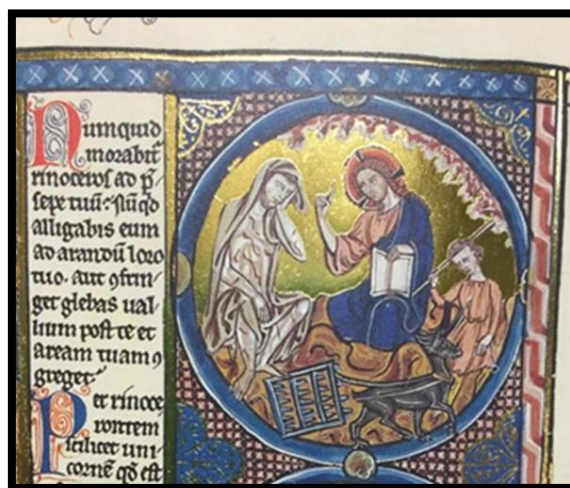 Numquid
morabit᷑
rinoceros ad p̄
sepe tuū: Nūqd
alligabis eum
ad arandū loro
tuo. aut ꝯfrin
get glebas ual
lium post te et
aream tuam ꝯ
greget
Per rinoce
rontem
scilicet uni
cornē qd est